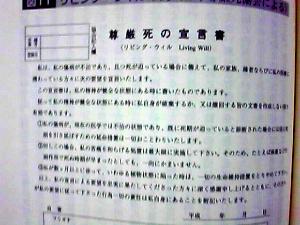 図11 リビング・
による)
尊厳死の宣言書
(リビング・ウィル Living Will)
私は、私の傷病が不治であり、且つ死が迫っている場合に備えて、私の家族、縁者ならびに私の医療に
携わっている方々に次の要望を宣言いたします。
この宣言書は、私の精神が健全な状態にある時に書いたものであります。
従って私の精神が健全な状態にある時に私自身が破棄するか、又は撤回する旨の文書を作成しない限り
有効であります。
①私の傷病が、現在の医学では不治の状態であり、既に死期が迫っていると診断された場合には徒に死
期を引き延すための延命措置は一切おことわりいたします。
②但しこの場合、私の苦痛を和らげる処置は最大限に実施して下さい。そのため、たとえば麻薬などの
副作用で死ぬ時期が早まったとしても、一向にかまいません。
③私が数ヶ月以上に渉って、いわゆる植物状態に陥った時は、一切の生命維持措置をとりやめて下さい。
以上、私の宣言による要望を忠実に果たしてくださった方々に深く感謝申し上げるとともに、その方々
が私の要望に従って下さった行為一切の責任は私自身にあることを附記いたします。
平成 年 月 日
フリガナ